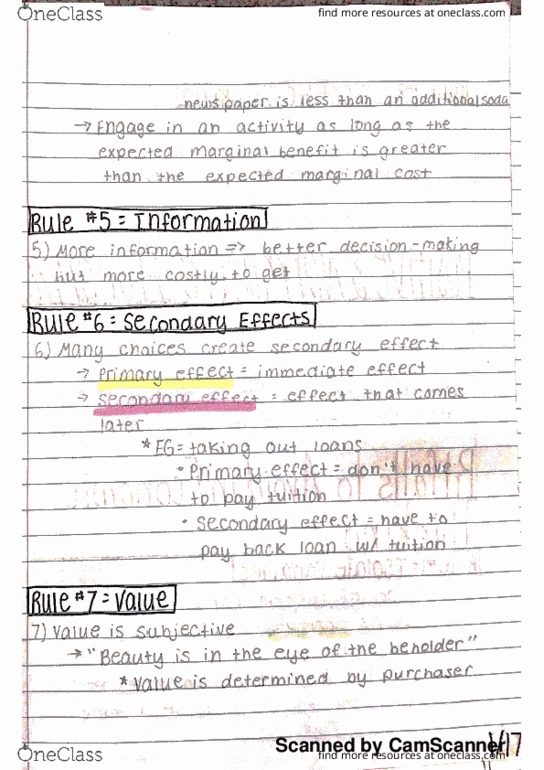 OneClass
find more resources at oneclass.com
newspaper is less than an additional soda
→ Engage in an activity as long as the
expected marginal benefit is greater
than the expected marginal cost
Rule #5 = Information
5) More information => better decision-making
but more costly to get
Rule #6 = Secondary Effects
6) Many choices create secondary effect
→ Primary effect = immediate effect
→ Secondary effect = effect that comes
later
* EG = taking out loans
• Primary effect = don't have
to pay tuition
• Secondary effect = have to
pay back loan w/ tuition
Rule #7 = Value
7) Value is subjective
→ "Beauty is in the eye of the beholder"
* Value is determined by purchaser
Scanned by CamScanner
OneClass
find more resources at oneclass.com